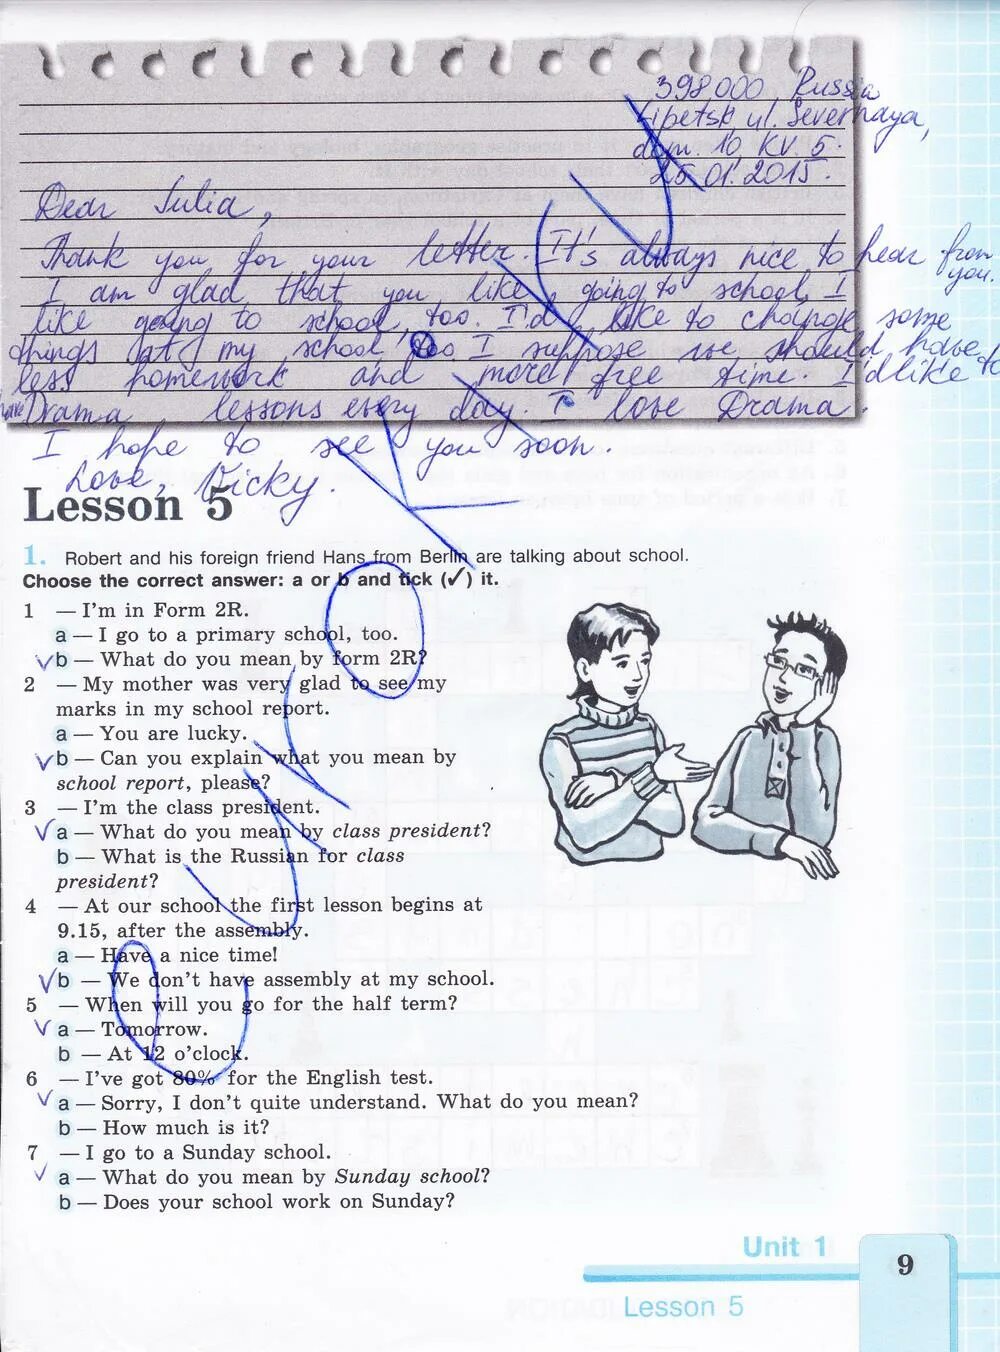 398000 Russia
Lipetsk ul. Severnaya,
dom. 10, KV. 5.
25.01.2015.
Dear Julia,
Thank you for your letter. It's always nice to hear from you.
I am glad that you like going to school, I
like going to school, too. I'd like to change some
things at my school too. I suppose we should have
less homework and more free time. I'd like to
have Drama lessons every day. I love Drama.
I hope to see you soon.
Love, Vicky.
Lesson 5
1. Robert and his foreign friend Hans from Berlin are talking about school.
Choose the correct answer: a or b and tick (✓) it.
1 — I'm in Form 2R.
a — I go to a primary school, too.
✓ b — What do you mean by form 2R?
2 — My mother was very glad to see my
marks in my school report.
a — You are lucky.
✓ b — Can you explain what you mean by
school report, please?
3 — I'm the class president.
✓ a — What do you mean by class president?
b — What is the Russian for class
president?
4 — At our school the first lesson begins at
9.15, after the assembly.
a — Have a nice time!
✓ b — We don't have assembly at my school.
5 — When will you go for the half term?
✓ a — Tomorrow.
b — At 12 o'clock.
6 — I've got 80% for the English test.
✓ a — Sorry, I don't quite understand. What do you mean?
b — How much is it?
7 — I go to a Sunday school.
✓ a — What do you mean by Sunday school?
b — Does your school work on Sunday?
Unit 1
9
Lesson 5